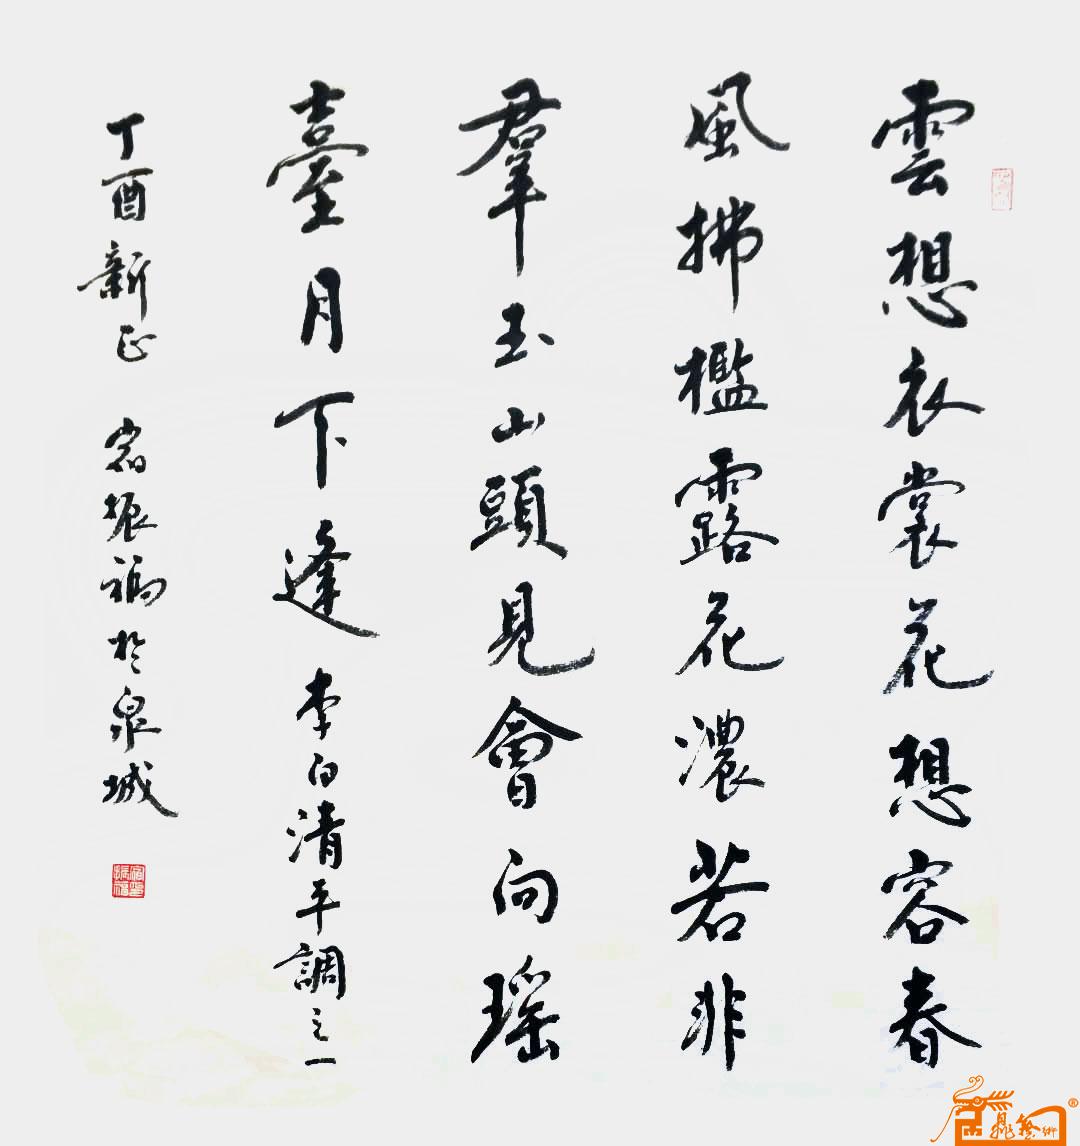 雲想衣裳花想容春
風拂檻露花濃若非
羣玉山頭見會向瑶
臺月下逢 李白清平調之一
丁酉新正 宿振福於泉城